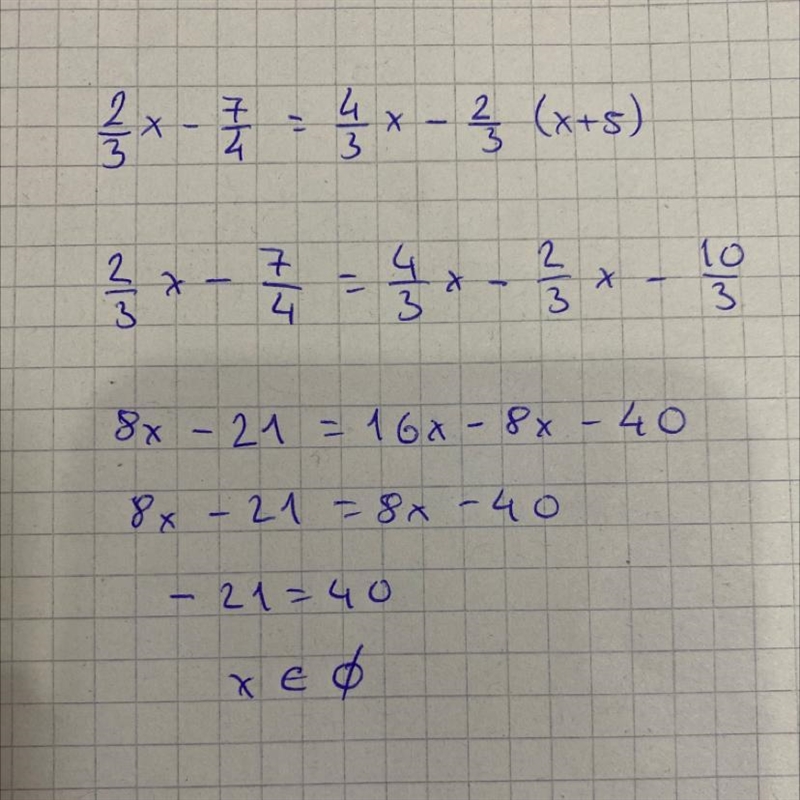 2/3 x - 7/4 = 4/3 x - 2/3 (x+5)
2/3 x - 7/4 = 4/3 x - 2/3 x - 10/3
8x - 21 = 16x - 8x - 40
8x - 21 = 8x - 40
- 21 = 40
x ∈ ∅